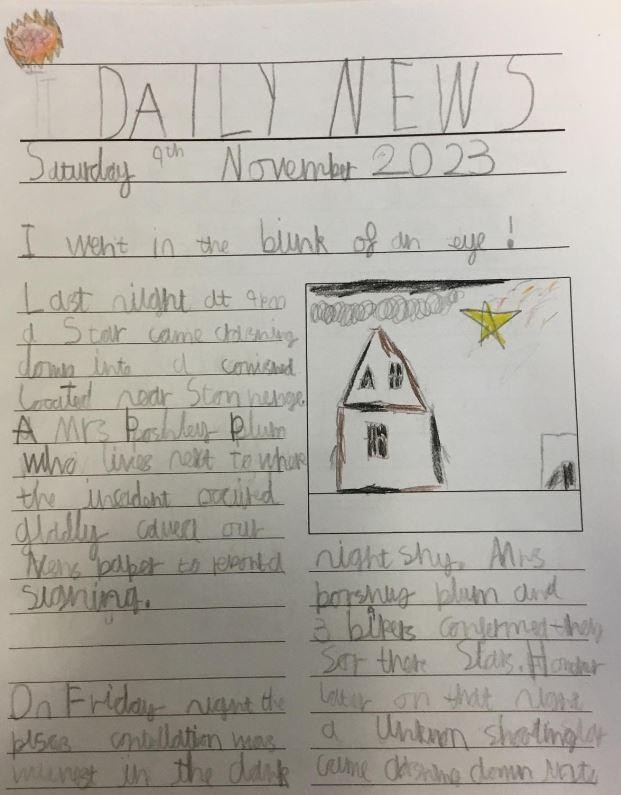 DAILY NEWS
Saturday 9th November 2023
I went in the blink of an eye!
Last night at
a Star came chrisning
down into a
Located near Stonnhenge
A Mrs Poshley Plum
who lives next to where
the insedent occired
gladly caued our
News paper to
signing.
On Friday night the
pises contellation was
in the dark
night shy. Mrs
porshuy plum and
3 bikers confermed they
Sor there Stars. However
later on that night
a Unknown shooting
came chrisning down